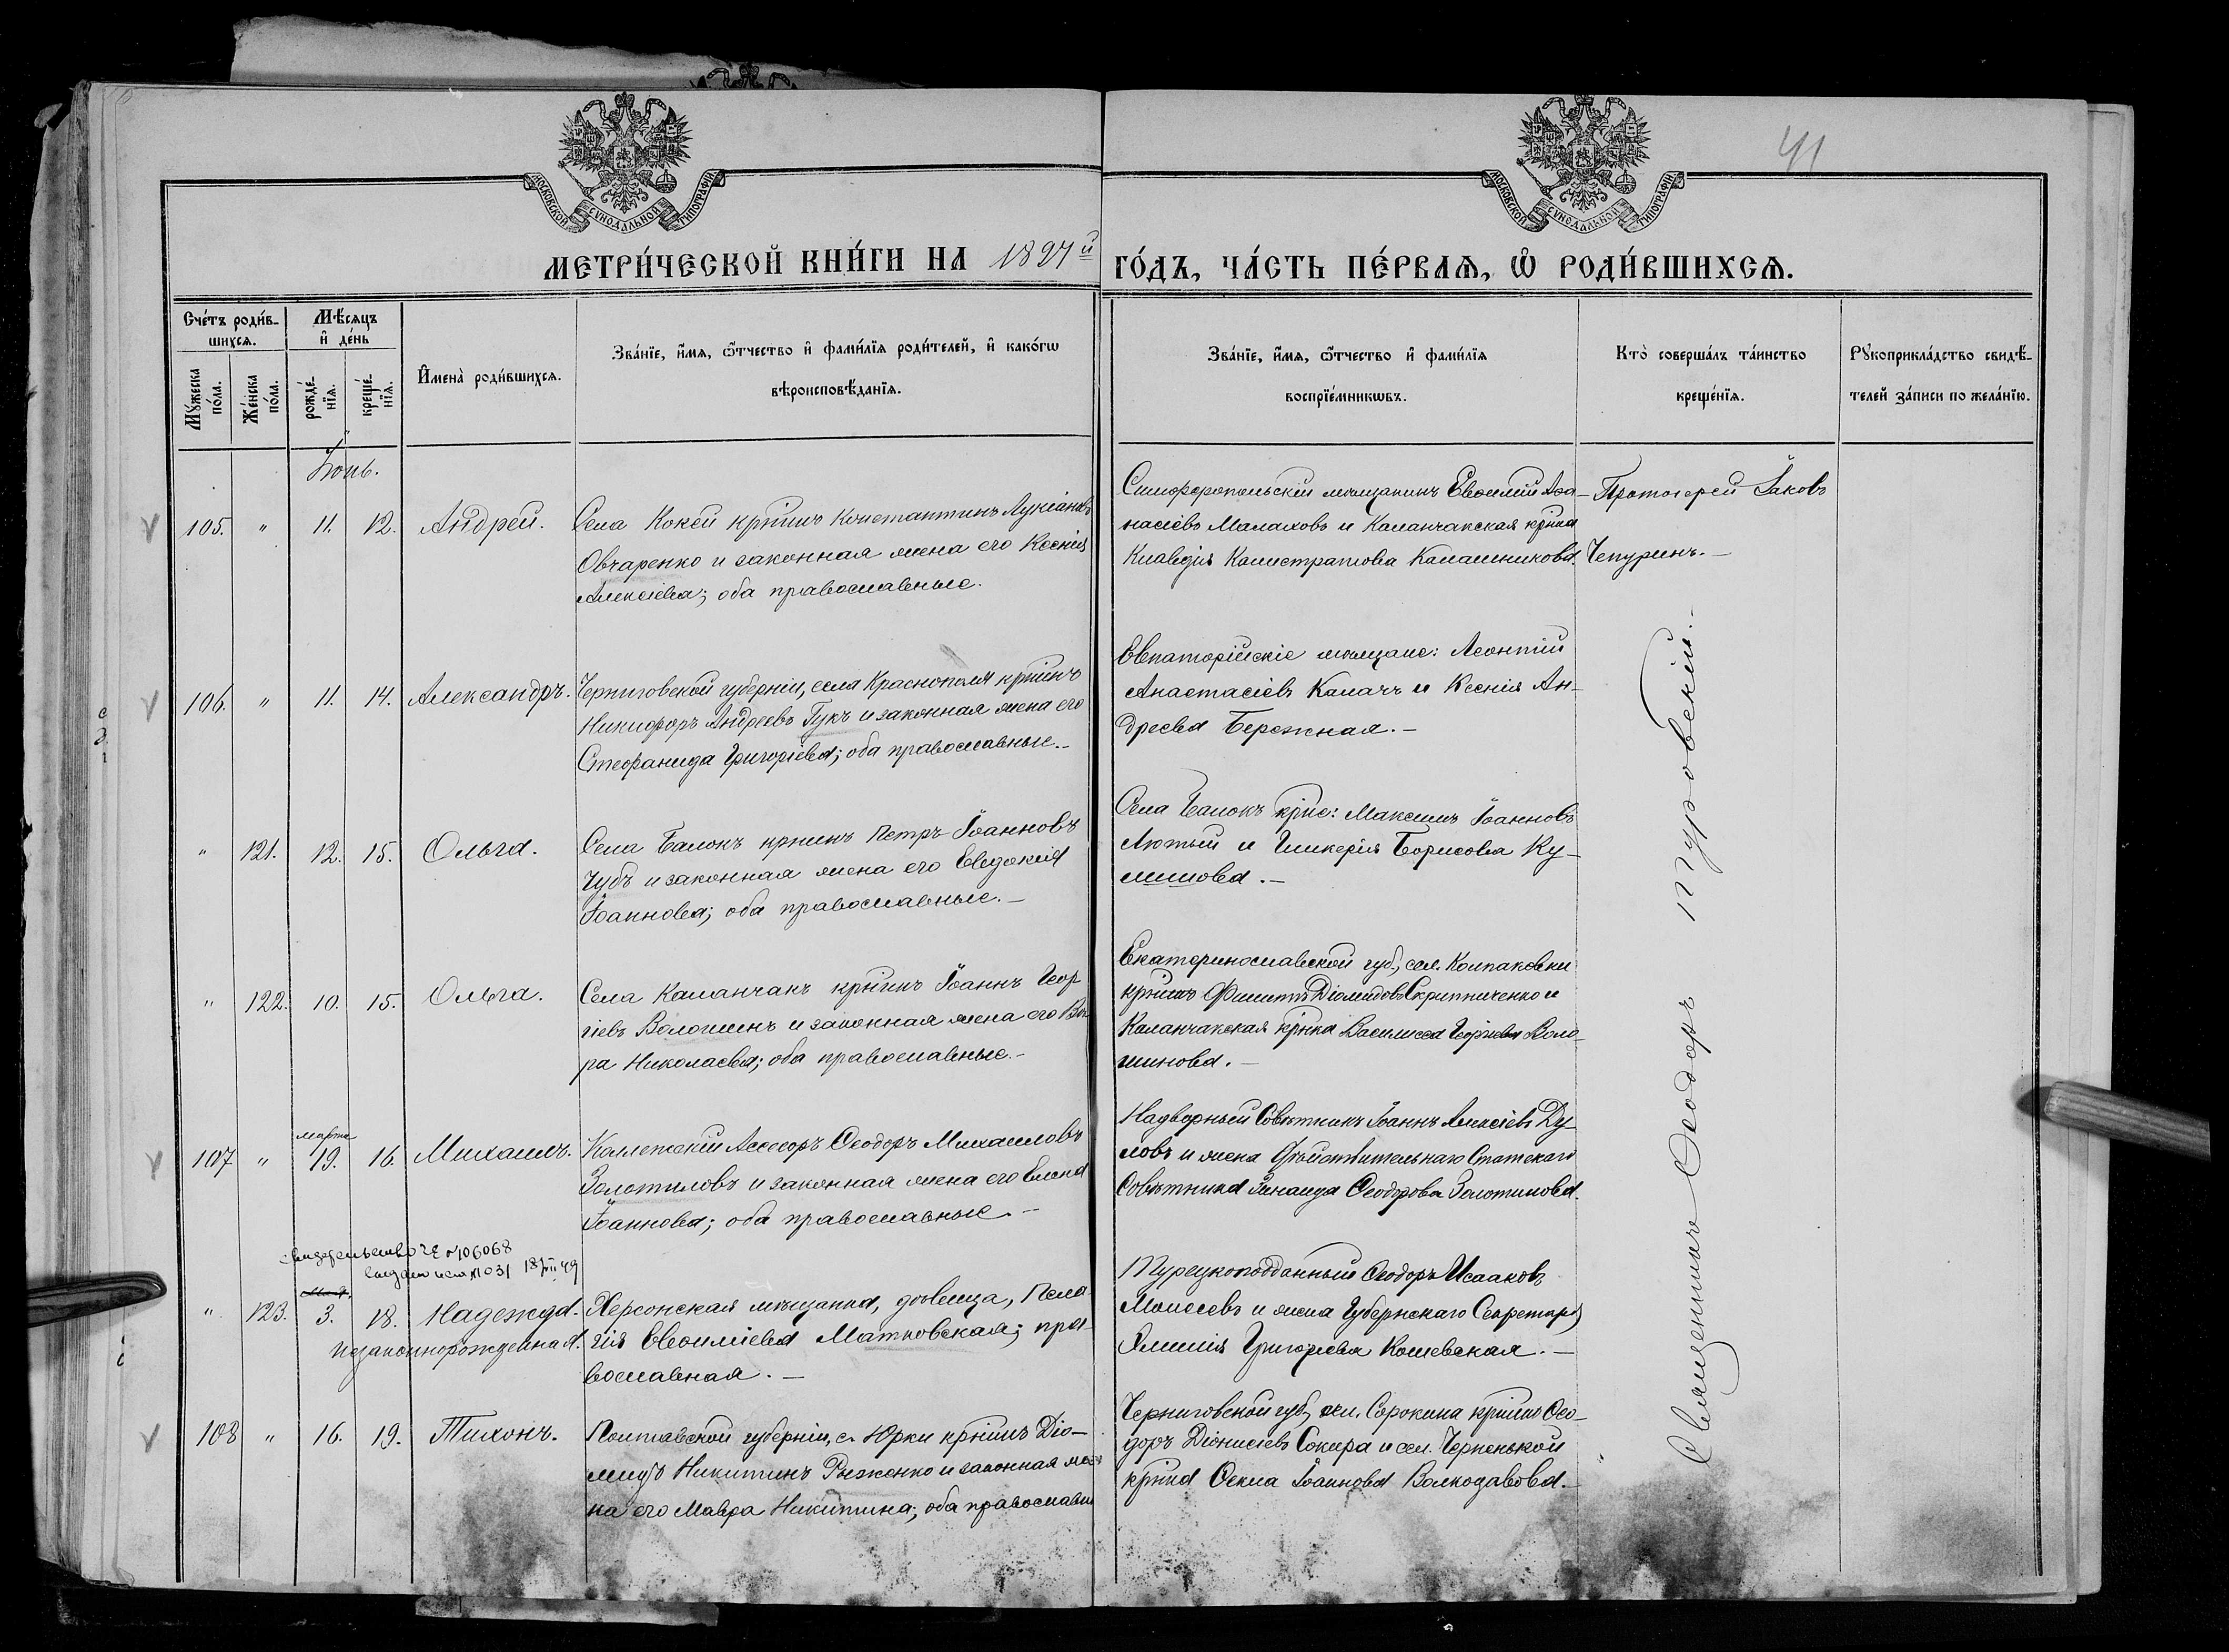 41
МОСКОВСКОЙ СУНОДАЛЬНОЙ ТИПОГРАФІИ
МОСКОВСКОЙ СУНОДАЛЬНОЙ ТИПОГРАФІИ
МЕТРИ́ЧЕСКОЙ КНИ́ГИ НА 1897й ГО́ДЪ, ЧА́СТЬ ПЕ́РВАѦ, Ѡ҆ РОДИ́ВШИХСѦ.
Сче́тъ роди́в-
шихсѧ.
Мѣ́сѧцъ
и҆ де́нь
Мꙋ́жеска
по́ла.
Же́нска
по́ла.
рожде́-
нїѧ.
креще́-
нїѧ.
И҆мена̀ роди́вшихсѧ.
Зва́нїе, и҆́мѧ, ѻ҆́тчество и҆ фами́лїѧ роди́телей, и҆ како́гѡ
вѣроисповѣ́данїѧ.
Зва́нїе, и҆́мѧ, ѻ҆́тчество и҆ фами́лїѧ
воспрїе́мникѡвъ.
Кто̀ соверша́лъ та́инство
креще́нїѧ.
Рꙋкоприкла́дство свидѣ́-
телей за́писи по жела́нїю.
Іюнь.
105. " 11. 12. Андрей.
Села Кокей кр̃нинъ Константинъ Лукіановъ
Овчаренко и законная жена его Ксенія
Алексіева; оба православные.
Симферопольскій мѣщанинъ Евѳимій Аѳа-
насіевъ Малаховъ и Каланчакская кр̃нка
Клавдія Калистратова Калашникова.
Протоіерей Іаковъ
Чепуринъ.-
106. " 11. 14. Александръ.
Черниговской губерніи, села Краснополья кр̃нинъ
Никифоръ Андреевъ Гукъ и законная жена его
Стефанида Григоріева; оба православные.-
Евпаторійскіе мѣщане: Леонтій
Анастасіевъ Калачъ и Ксенія Ан-
дреева Бережная.-
" 121. 12. 15. Ольга.
Села Балокъ кр̃нинъ Петръ Іоанновъ
Чубъ и законная жена его Евдокія
Іоаннова; оба православные.-
Села Балокъ кр̃не: Максимъ Іоанновъ
Лютый и Гликерія Борисова Ку-
лишова.-
" 122. 10. 15. Ольга.
Села Каланчакъ кр̃нинъ Іоаннъ Геор
гіевъ Волошинъ и законная жена его Вѣ
ра Николаева; оба православные.-
Екатеринославской губ., сел. Колпаковки
кр̃нинъ Филиппъ Діомидовъ Скрипниченко и
Каланчакская кр̃нка Василисса Георгіева Воло-
шинова.-
107 " марта 19. 16. Михаилъ.
Коллежскій Асессоръ Ѳеодоръ Михаиловъ
Золотиловъ и законная жена его Елена
Іоаннова; оба православные.-
Надворный Совѣтникъ Іоаннъ Алексіевъ Ду
ловъ и жена Дѣйствительнаго Статскаго
Совѣтника Зинаида Ѳеодорова Золотилова.
свидетельство ЧЕ №106068
18/VII 49
" 123. 3. 18. Надежда.
незаконнорожденная.
Херсонская мѣщанка, дѣвица, Пела
гія Евѳиміева Матковская; пра-
вославная.-
Турецкоподданный Ѳеодоръ Исааковъ
Моисеевъ и жена Губернскаго Секретаря
Григоріева Кошевская.-
108 " 16. 19. Тихонъ.
Полтавской губерніи, с. Юрки кр̃нинъ Діо-
мидъ Никитинъ Рыженко и законная же-
на его Мавра Никитина; оба православн
Черниговской губ, сел. Сорокина кр̃нинъ Ѳео-
доръ Діонисіевъ Сокира и сел. Черненькой
кр̃нка Ѳекла Іоаннова Волкодавова.-
Священникъ Ѳеодоръ Туровскій.